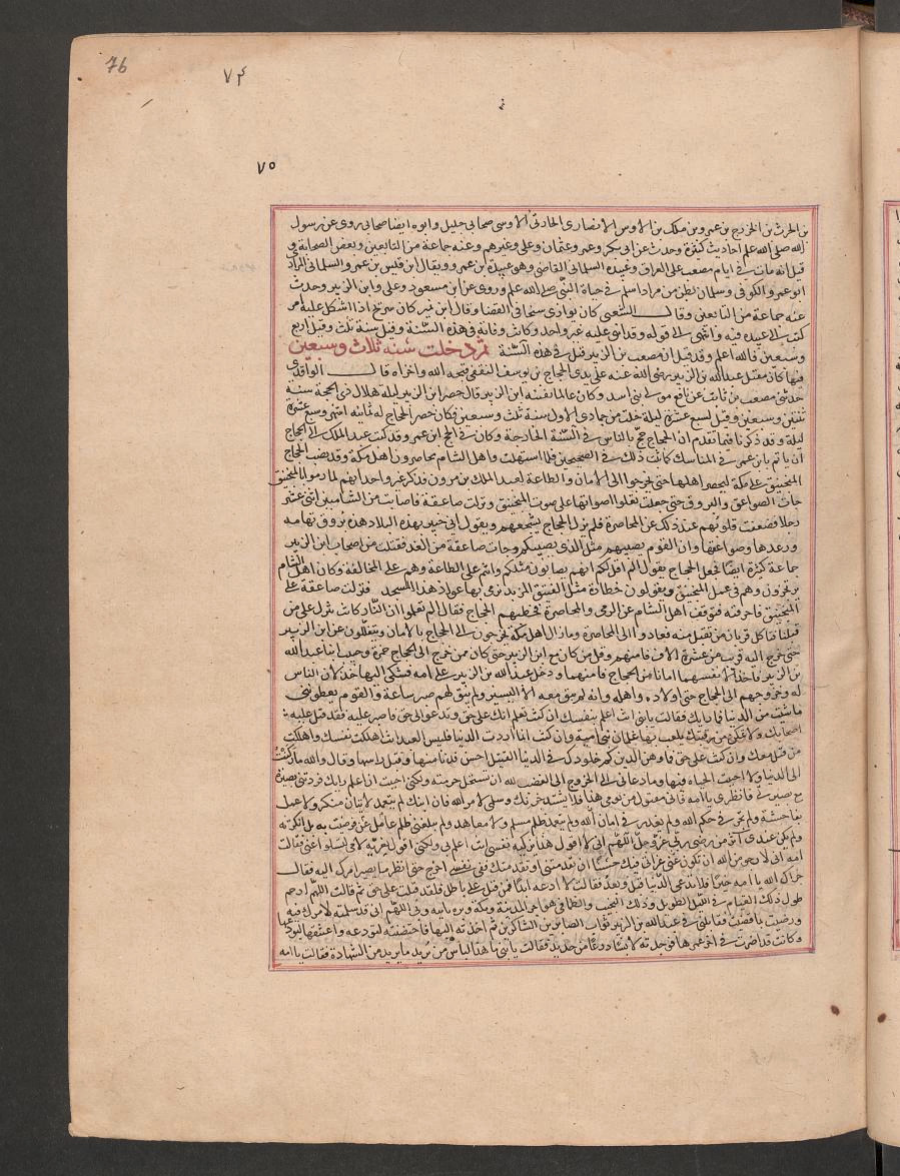 76
٧٤
٧٥
بن الحرث بن الخزرج بن عمرو بن ملك بن الاوس الانصارى الحارثى الاوسى صحابى جليل وابوه ايضا صحابى روى عن رسول
الله صلى الله علم احاديث كثيرة وحدث عن ابى بكر وعمر وعثمان وعلى وغيرهم وعنه جماعة من التابعين وبعض الصحابة
قيل انه مات فى ايام مصعب على العراق وعبيده السلمانى القاضى وهو عبيدة بن عمرو ويقال ابن قيس بن عمرو السلمانى المرادى
ابو عمرو الكوفى وسلمان بطن من مراد اسلم فى حياة النبى صلى الله علم وروى عن ابن مسعود وعلى وابن الزبير وحدث
عنه جماعة من التابعين وقال الشعبى كان يوازى شريحا فى القضا وقال ابن نمير كان شريح اذا اشكل عليه امر
كتب الى عبيده فيه وانتهى الى قوله وقد اثنى عليه غير واحد وكانت وفاته فى هذه السنة وقيل سنة ثلث وقيل اربع
وسبعين فالله اعلم وقد قيل ان مصعب بن الزبير قتل فى هذه السنة ثم دخلت سنه ثلاث وسبعين
فيها كان مقتل عبدالله بن الزبير رضى الله عنه على يدى الحجاج بن يوسف الثقفى قبحه الله واخزاه قال الواقدى
حدثنى مصعب بن ثابت عن نافع مولى بنى اسد وكان عالما بفتنه ابن الزبير قال حصر ابن الزبير ليلة هلال ذى الحجة سنة
ثنتين وسبعين وقتل لسبع عشرة ليلة خلت من جمادى الاول سنة ثلث وسبعين فكان حصر الحجاج له ثمانية اشهر وسبع عشرة
ليلة وقد ذكرنا فيما تقدم ان الحجاج حج بالناس فى السنة الخارجة وكان فى الحج ابن عمر وقد كتب عبد الملك الى الحجاج
ان ياتم بابن عمر فى المناسك كما ثبت ذلك فى الصحيحين فلما استهلت واهل الشام محاصرون اهل مكة وقد نصب الحجاج
المنجنيق على مكة ليحصر اهلها حتى يخرجوا الى الامان والطاعة لعبد الملك بن مرون فذكر غير واحد انهم لما رموا بالمنجنيق
جات الصواعق والبروق حتى جعلت تعلوا اصواتها على صوت المنجنيق ونزلت صاعقة فاصابت من الشاميين اثنى عشر
رجلا فضعفت قلوبهم عند ذلك عن المحاصرة فلم يزل الحجاج يشجعهم ويقول انى خبير بهذه البلاد هذه بروق تهامه
ورعدها وصواعقها وان القوم يصيبهم مثل الذى يصيبكم وجات صاعقة من الغد فقتلت من اصحاب ابن الزبير
جماعة كثيرة ايضا فجعل الحجاج يقول الم اقل لكم انهم يصابون مثلكم وانتم على الطاعة وهم على المخالفة وكان اهل الشام
يرتجزون وهم فى عمل المنجنيق ويقولون خطارة مثل الفنيق المزبد نرمى بها عواذ هذا المسجد فنزلت صاعقة على
المنجنيق فاحرقته فتوقف اهل الشام عن الرمى والمحاصرة فخطبهم الحجاج فقال الم تعلموا ان النار كانت تنزل على من
قبلنا فتاكل قربان من تقبل منه فعادوا الى المحاصرة وما زال اهل مكة يخرجون الى الحجاج بالامان ويتفللون عن ابن الزبير
حتى خرج اليه قريب من عشرة الاف فامنهم وقل من كان مع ابن الزبير حتى كان ممن خرج الى الحجاج حمزة وحبيب ابنا عبدالله
بن الزبير فاخذا لانفسهما امانا من الحجاج فامنهما ودخل عبدالله بن الزبير على امه فشكى اليها خذلان الناس
له وخروجهم الى الحجاج حتى اولاده واهله وانه لم يبق معه الا اليسير ولم يبق لهم صبر ساعة والقوم يعطوننى
ما شئت من الدنيا فما رايك فقالت يابنى انت اعلم بنفسك ان كنت تعلم انك على حق وتدعو الى حق فاصبر عليه فقد قتل عليه
اصحابك ولا تمكن من رقبتك يلعب بها غلمان بنى امية وان كنت انما اردت الدنيا فلبيس العبد انت اهلكت نفسك واهلكت
من قتل معك وان كنت على حق فما وهن الدين كم خلودك فى الدنيا القتل احسن فدنا منها وقبل راسها وقال والله ما ركنت
الى الدنيا ولا احببت الحياة فيها وما دعانى الى الخروج الى الغضب لله ان تستحل حرمته ولكنى احببت ان اعلم رايك فزدتنى بصيرة
مع بصيرتى فانظرى يا امه فانى مقتول من يومى هذا فلا يشتد حزنك وسلمى لامر الله فان ابنك لم يتعمد لاتيان منكر ولا عمل
بفاحشة ولم يجر فى حكم الله ولم يغدر فى امان الله ولم يتعمد ظلم مسلم ولا معاهد ولم يبلغنى ظلم عامل عن فرضيت به بل انكرته
ولم يكن عندى آثر من رضى ربى عز وجل اللهم انى لا اقول هذا تزكيه لنفسى انت اعلم بى ولكنى اقول تعزية لامى لتسلوا عنى فقالت
امه انى لارجو من الله ان تكون عزاى فيك حسنا ان تقدمتنى او تقدمتك ففى نفسى اخرج حتى انظر ما يصير امرك اليه فقال
جزاك الله يا امه خيرا فلا تدعى الدعا قبل وبعد فقالت لا ادعه ابدا فمن قتل على باطل فلقد قتلت على حق ثم قالت اللهم ارحم
طول ذلك القيام فى الليل الطويل وذلك النحيب والظما فى هواجر المدينة ومكة وبره بابيه وبى اللهم انى قد سلمته لامرك فيه
ورضيت بما قضيت فقابلنى فى عبدالله بن الزبير ثواب الصابرين الشاكرين ثم اخذته اليها فاحتضنته لتودعه واعتنقها ليودعها
وكانت قد اضرت فى اخر عمرها فوجدته لابسا درعا من حديد فقالت يابنى ما هذا لباس من يريد ما يريد من الشهادة فقالت يا امه